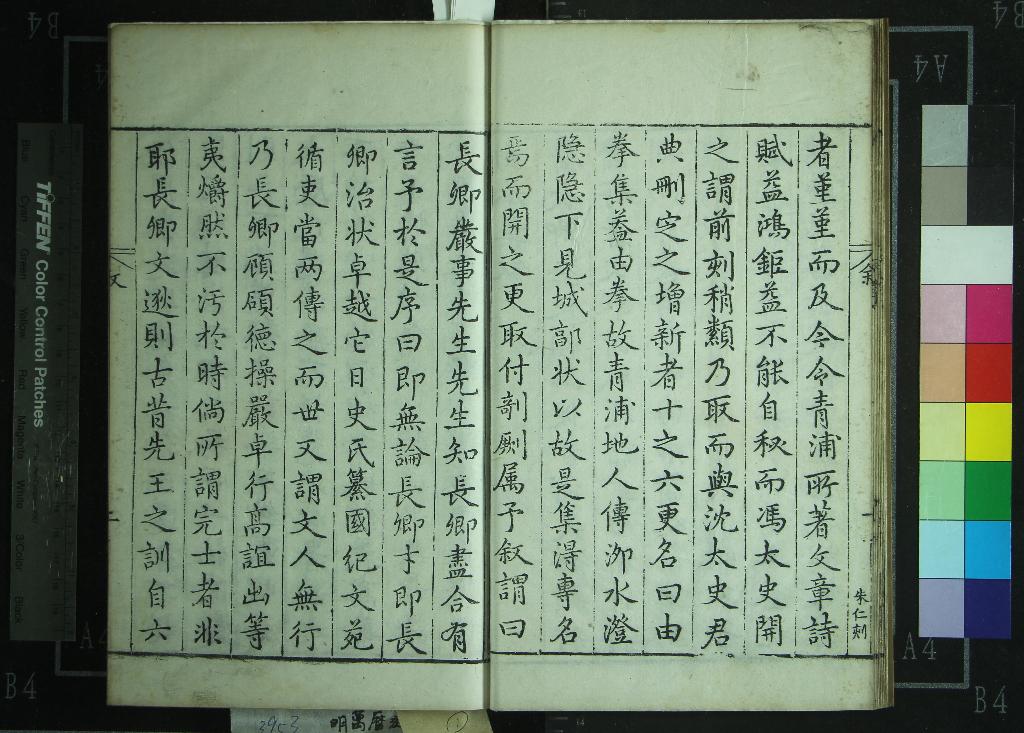 者堇堇而及令令青浦所著文章詩
賦益鴻鉅益不能自秘而馮太史開
之謂前刻稍纇乃取而與沈太史君
典刪定之增新者十之六更名曰由
拳集葢由拳故青浦地人傳泖水澄
隐隐下見城郭状以故是集淂專名
焉而開之更取付剞劂属予叙謂曰
長卿嚴事先生先生知長卿盡合有
言予於是序曰即無論長卿才即長
卿治状卓越它日史氏纂國紀文苑
循吏當两傳之而世又謂文人無行
乃長卿頎頎德操嚴卓行高誼出等
夷爝然不污於時倘所謂完士者非
耶長卿文遜則古昔先王之訓自六
朱仁刻
文
二
B4
A4
B4
A4
B4
A4
B4
TIFFEN Color Control Patches
Blue
Cyan
Green
Yellow
Red
Magenta
White
3/Color
Black
2953
明萬曆
1